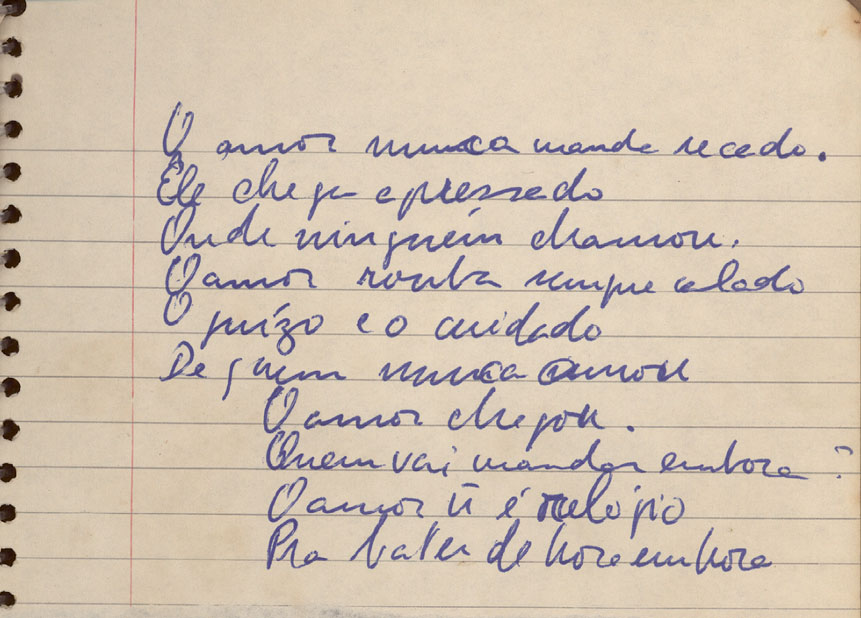 O amor nunca manda recado.
Êle chega apressado
Onde ninguém chamou.
O amor rouba sempre calado
O juízo e o cuidado
De quem nunca amou
O amor chegou.
Quem vai mandar embora?
O amor ñ é relógio
Pra bater de hora em hora